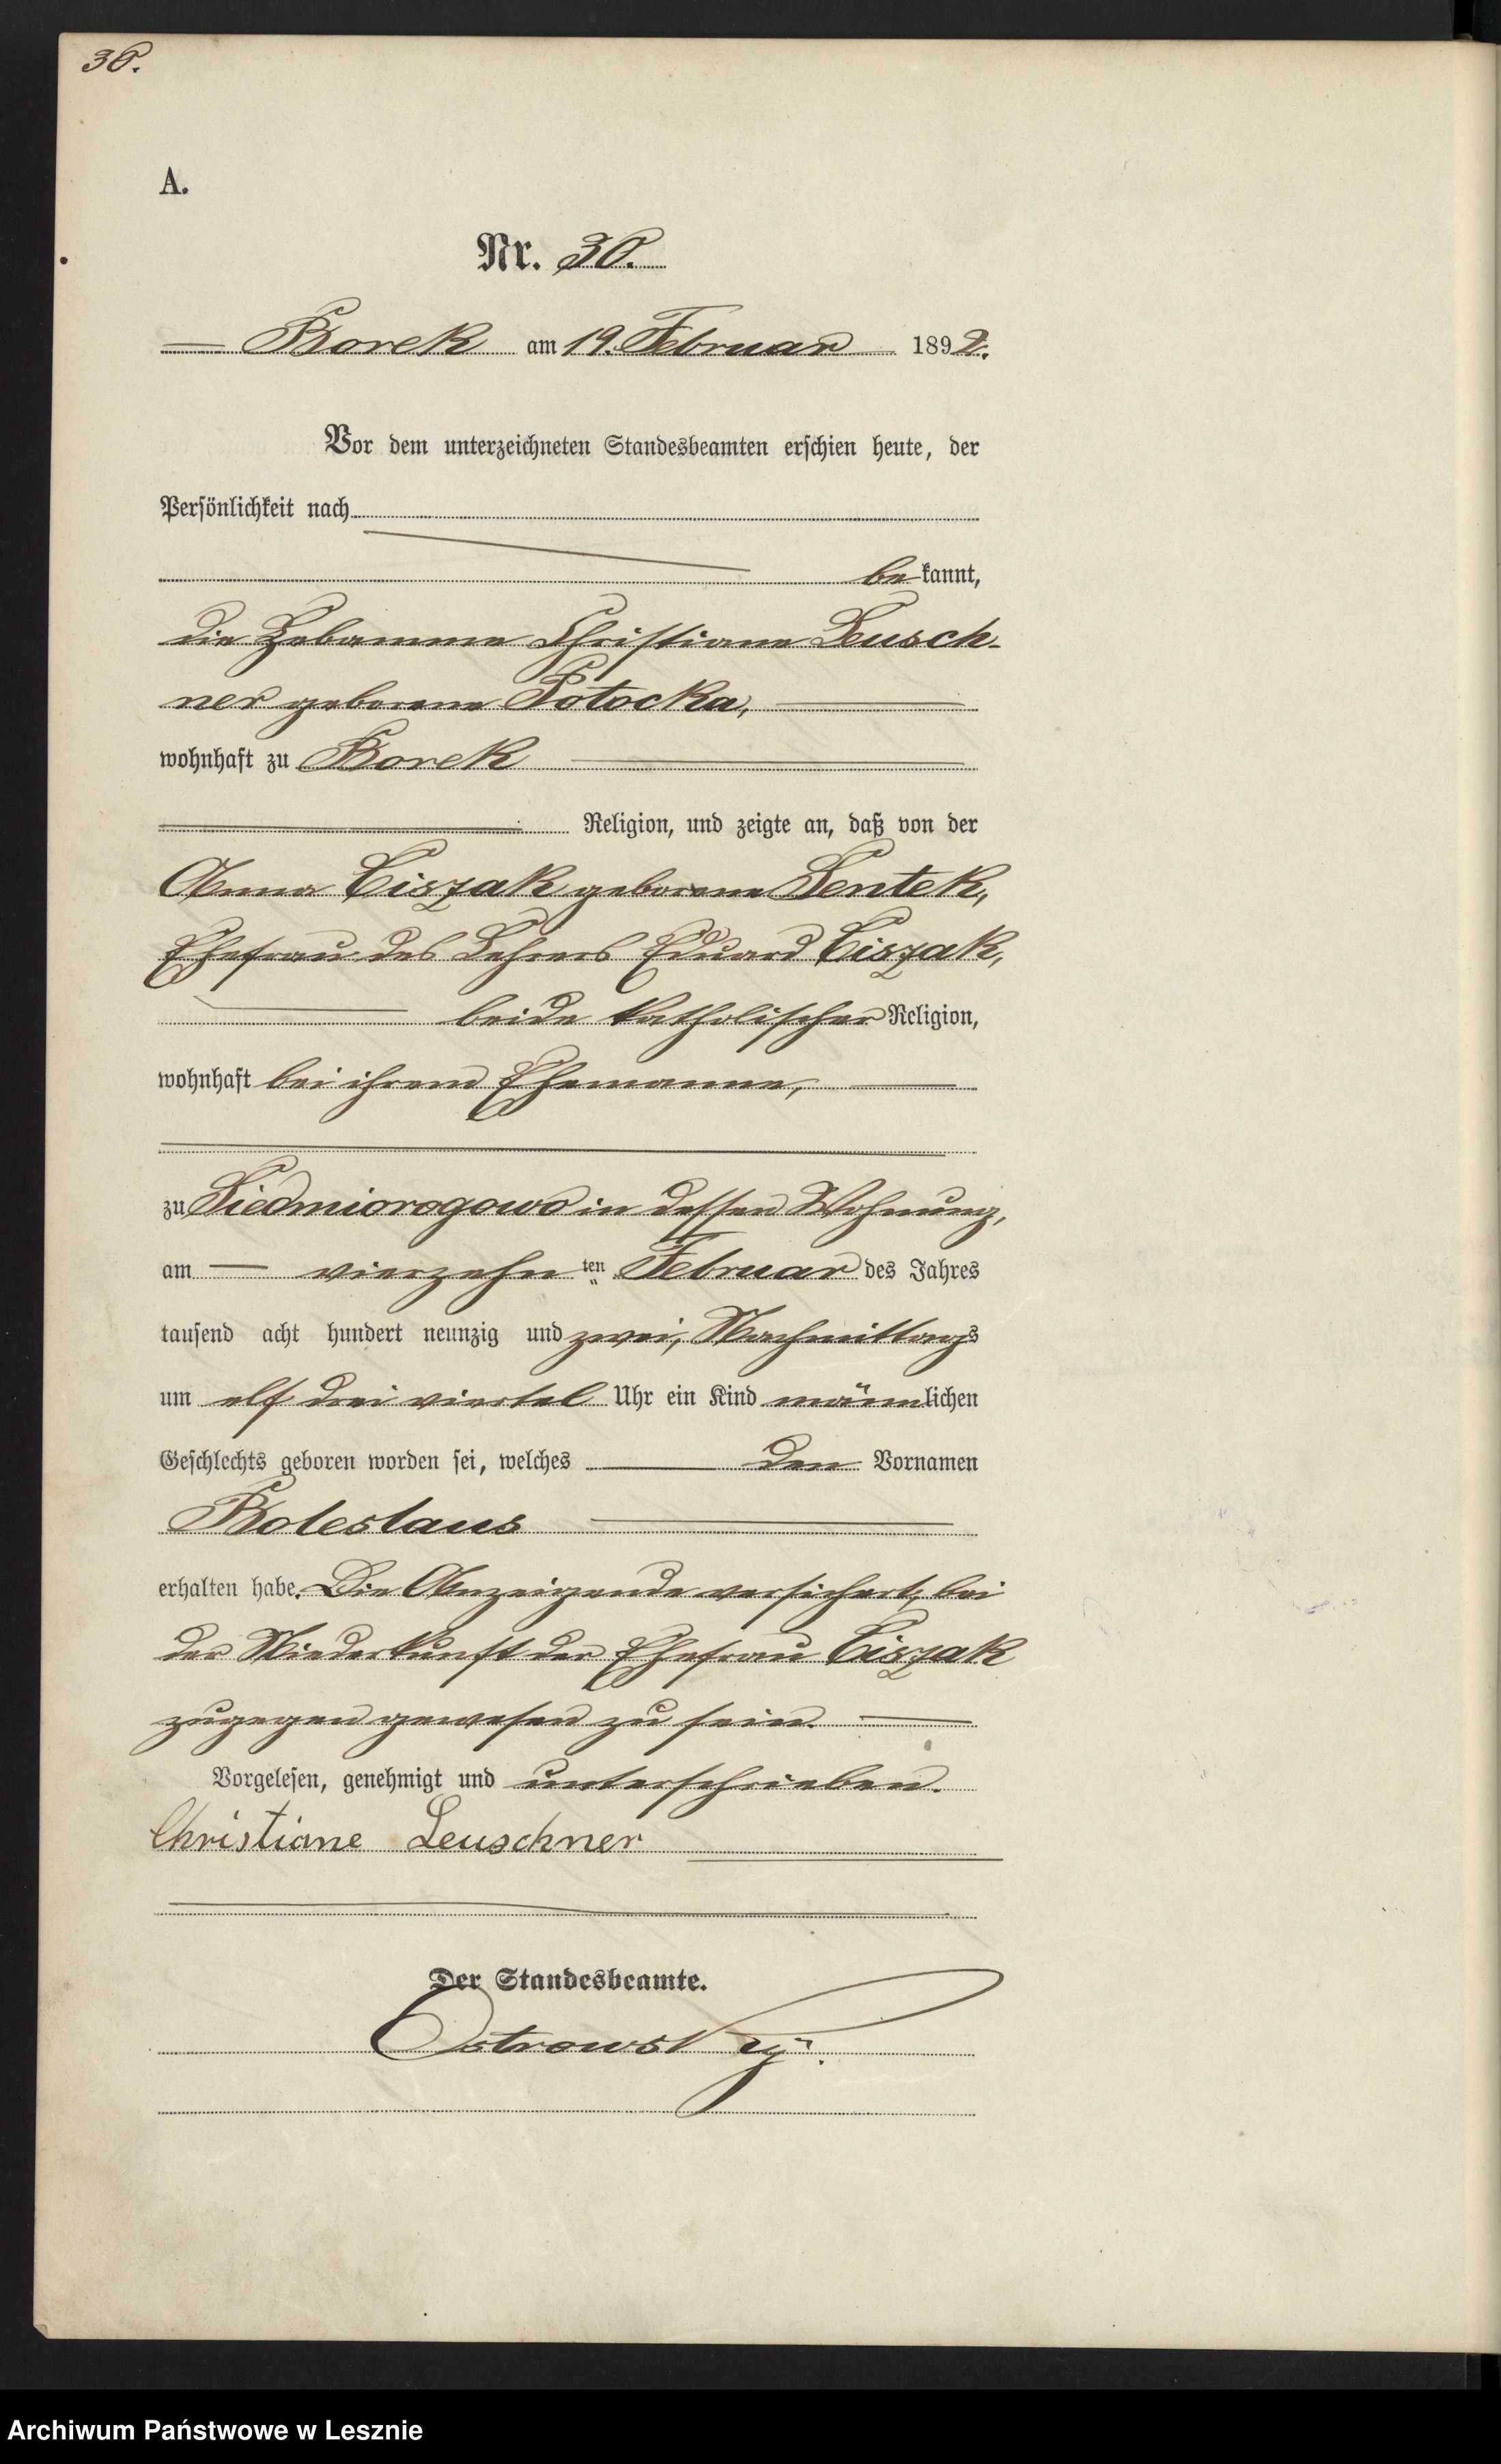 30.
A.
Nr. 30.
Borek am 19. Februar 1892.
Vor dem unterzeichneten Standesbeamten erschien heute, der
Persönlichkeit nach
bekannt,
die Hebamme Christiane Leusch-
ner geborene Potocka,
wohnhaft zu Borek
Religion, und zeigte an, daß von der
Anna Ciszak geborene Sentek,
Ehefrau des Lehrers Eduard Ciszak,
beide katholischer Religion,
wohnhaft bei ihrem Ehemanne,
zu Siedmiorogowo in dessen Wohnung,
am vierzehn ten Februar des Jahres
tausend acht hundert neunzig und zwei, Nachmittags
um elf drei viertel Uhr ein Kind männlichen
Geschlechts geboren worden sei, welches den Vornamen
Boleslaus
erhalten habe. Die Anzeigende versichert, bei
der Niederkunft der Ehefrau Ciszak
zugegen gewesen zu sein.
Vorgelesen, genehmigt und unterschrieben.
Christiane Leuschner
Der Standesbeamte.
Ostrowsky.
Archiwum Państwowe w Lesznie